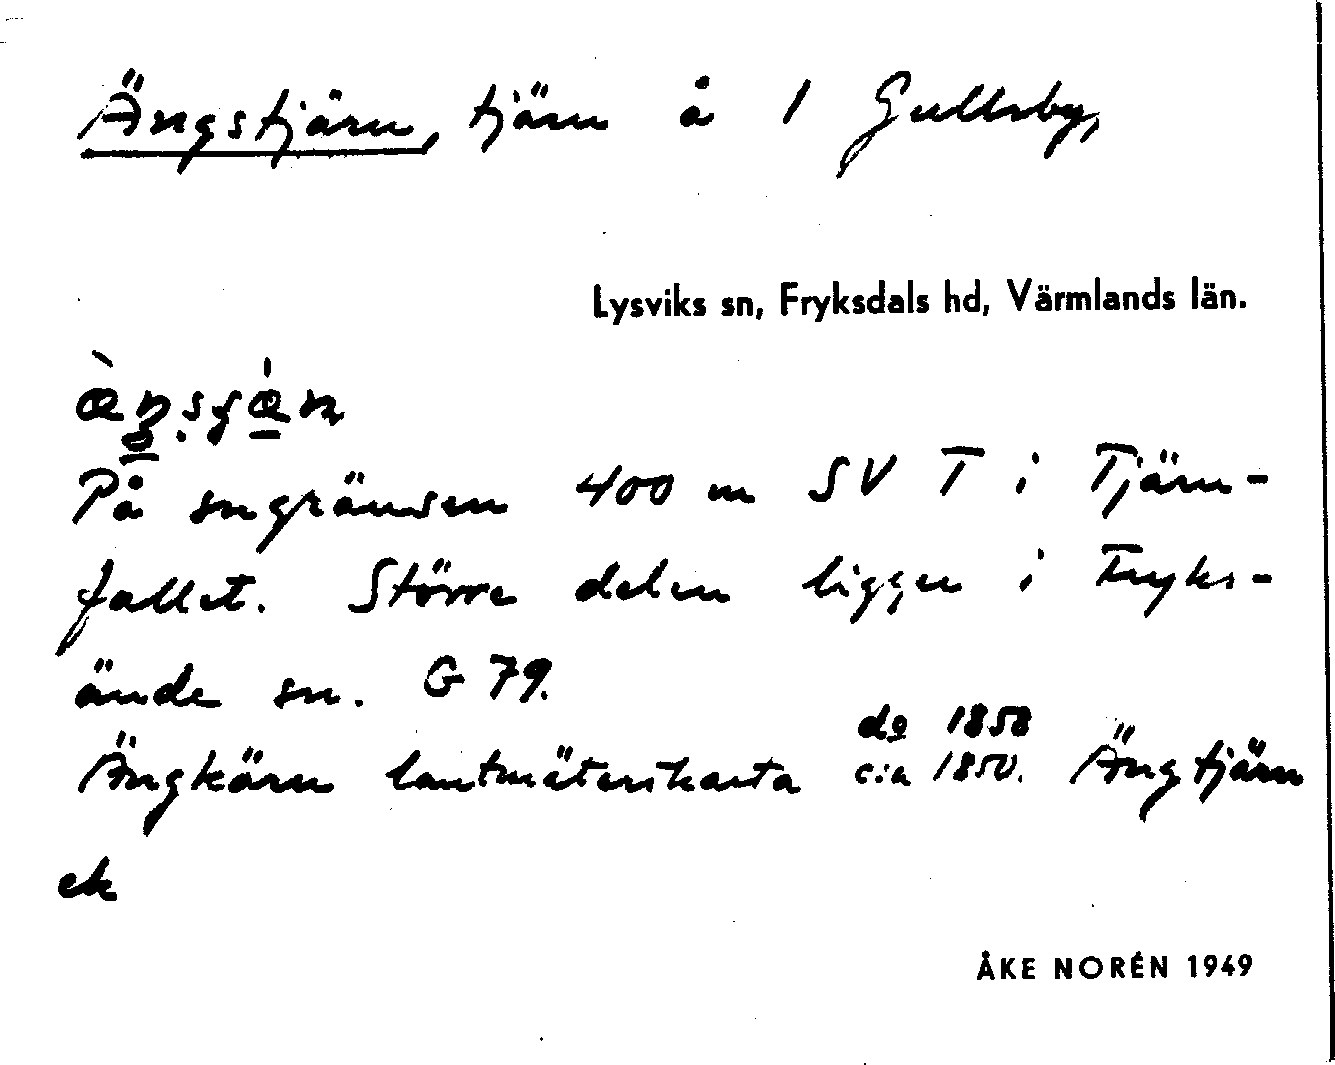 Ängstjärn, tjärn å 1 Gullsby,
Lysviks sn, Fryksdals hd, Värmlands län.
På sngränsen 400 m SV T i Tjärn-
fallet. Större delen ligger i Fryks-
ände sn. G 79.
do 1858
Ängkärn lantmäterikarta c:a 1850. Ängtjärn
ek
ÅKE NORÉN 1949